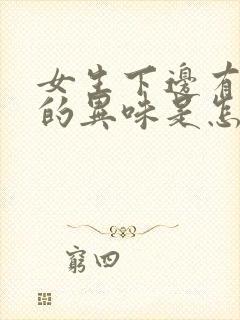 女生下邊有
的異味是怎
窮四